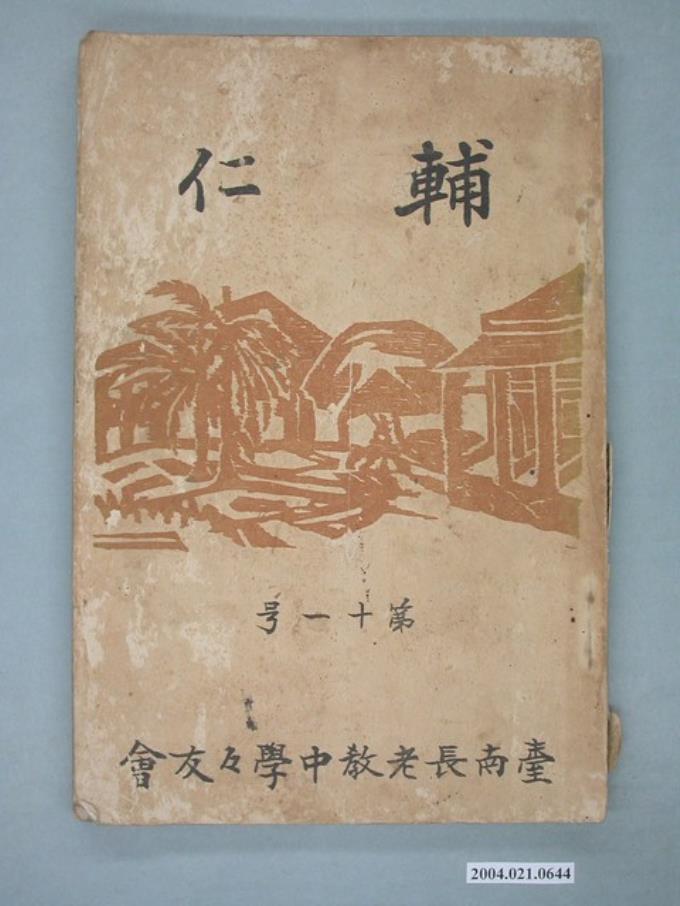 輔仁
第十一号
臺南長老教中學々友會
2004.021.0644